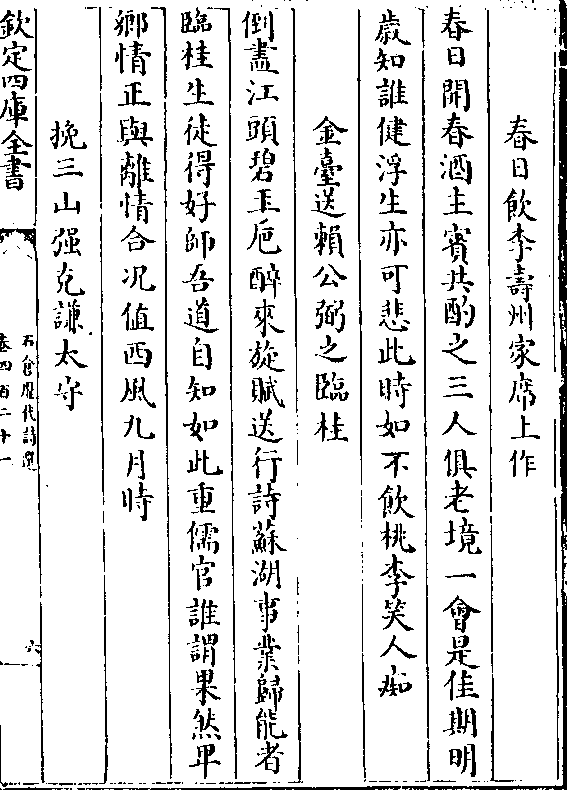 春日飲李壽州家席上作
春日開春酒主賓共酌之三人俱老境一會是佳期明
歲知誰健浮生亦可悲此時如不飲桃李笑人痴
金臺送賴公弼之臨桂
倒盡江頭碧玉巵醉來旋賦送行詩蘇湖事業歸能者
臨桂生徒得好師吾道自知如此重儒官誰謂果然卑
鄉情正與離情合况值西風九月時
挽三山强克謙太守
欽定四庫全書
石倉歷代詩選
卷四百二十一
六